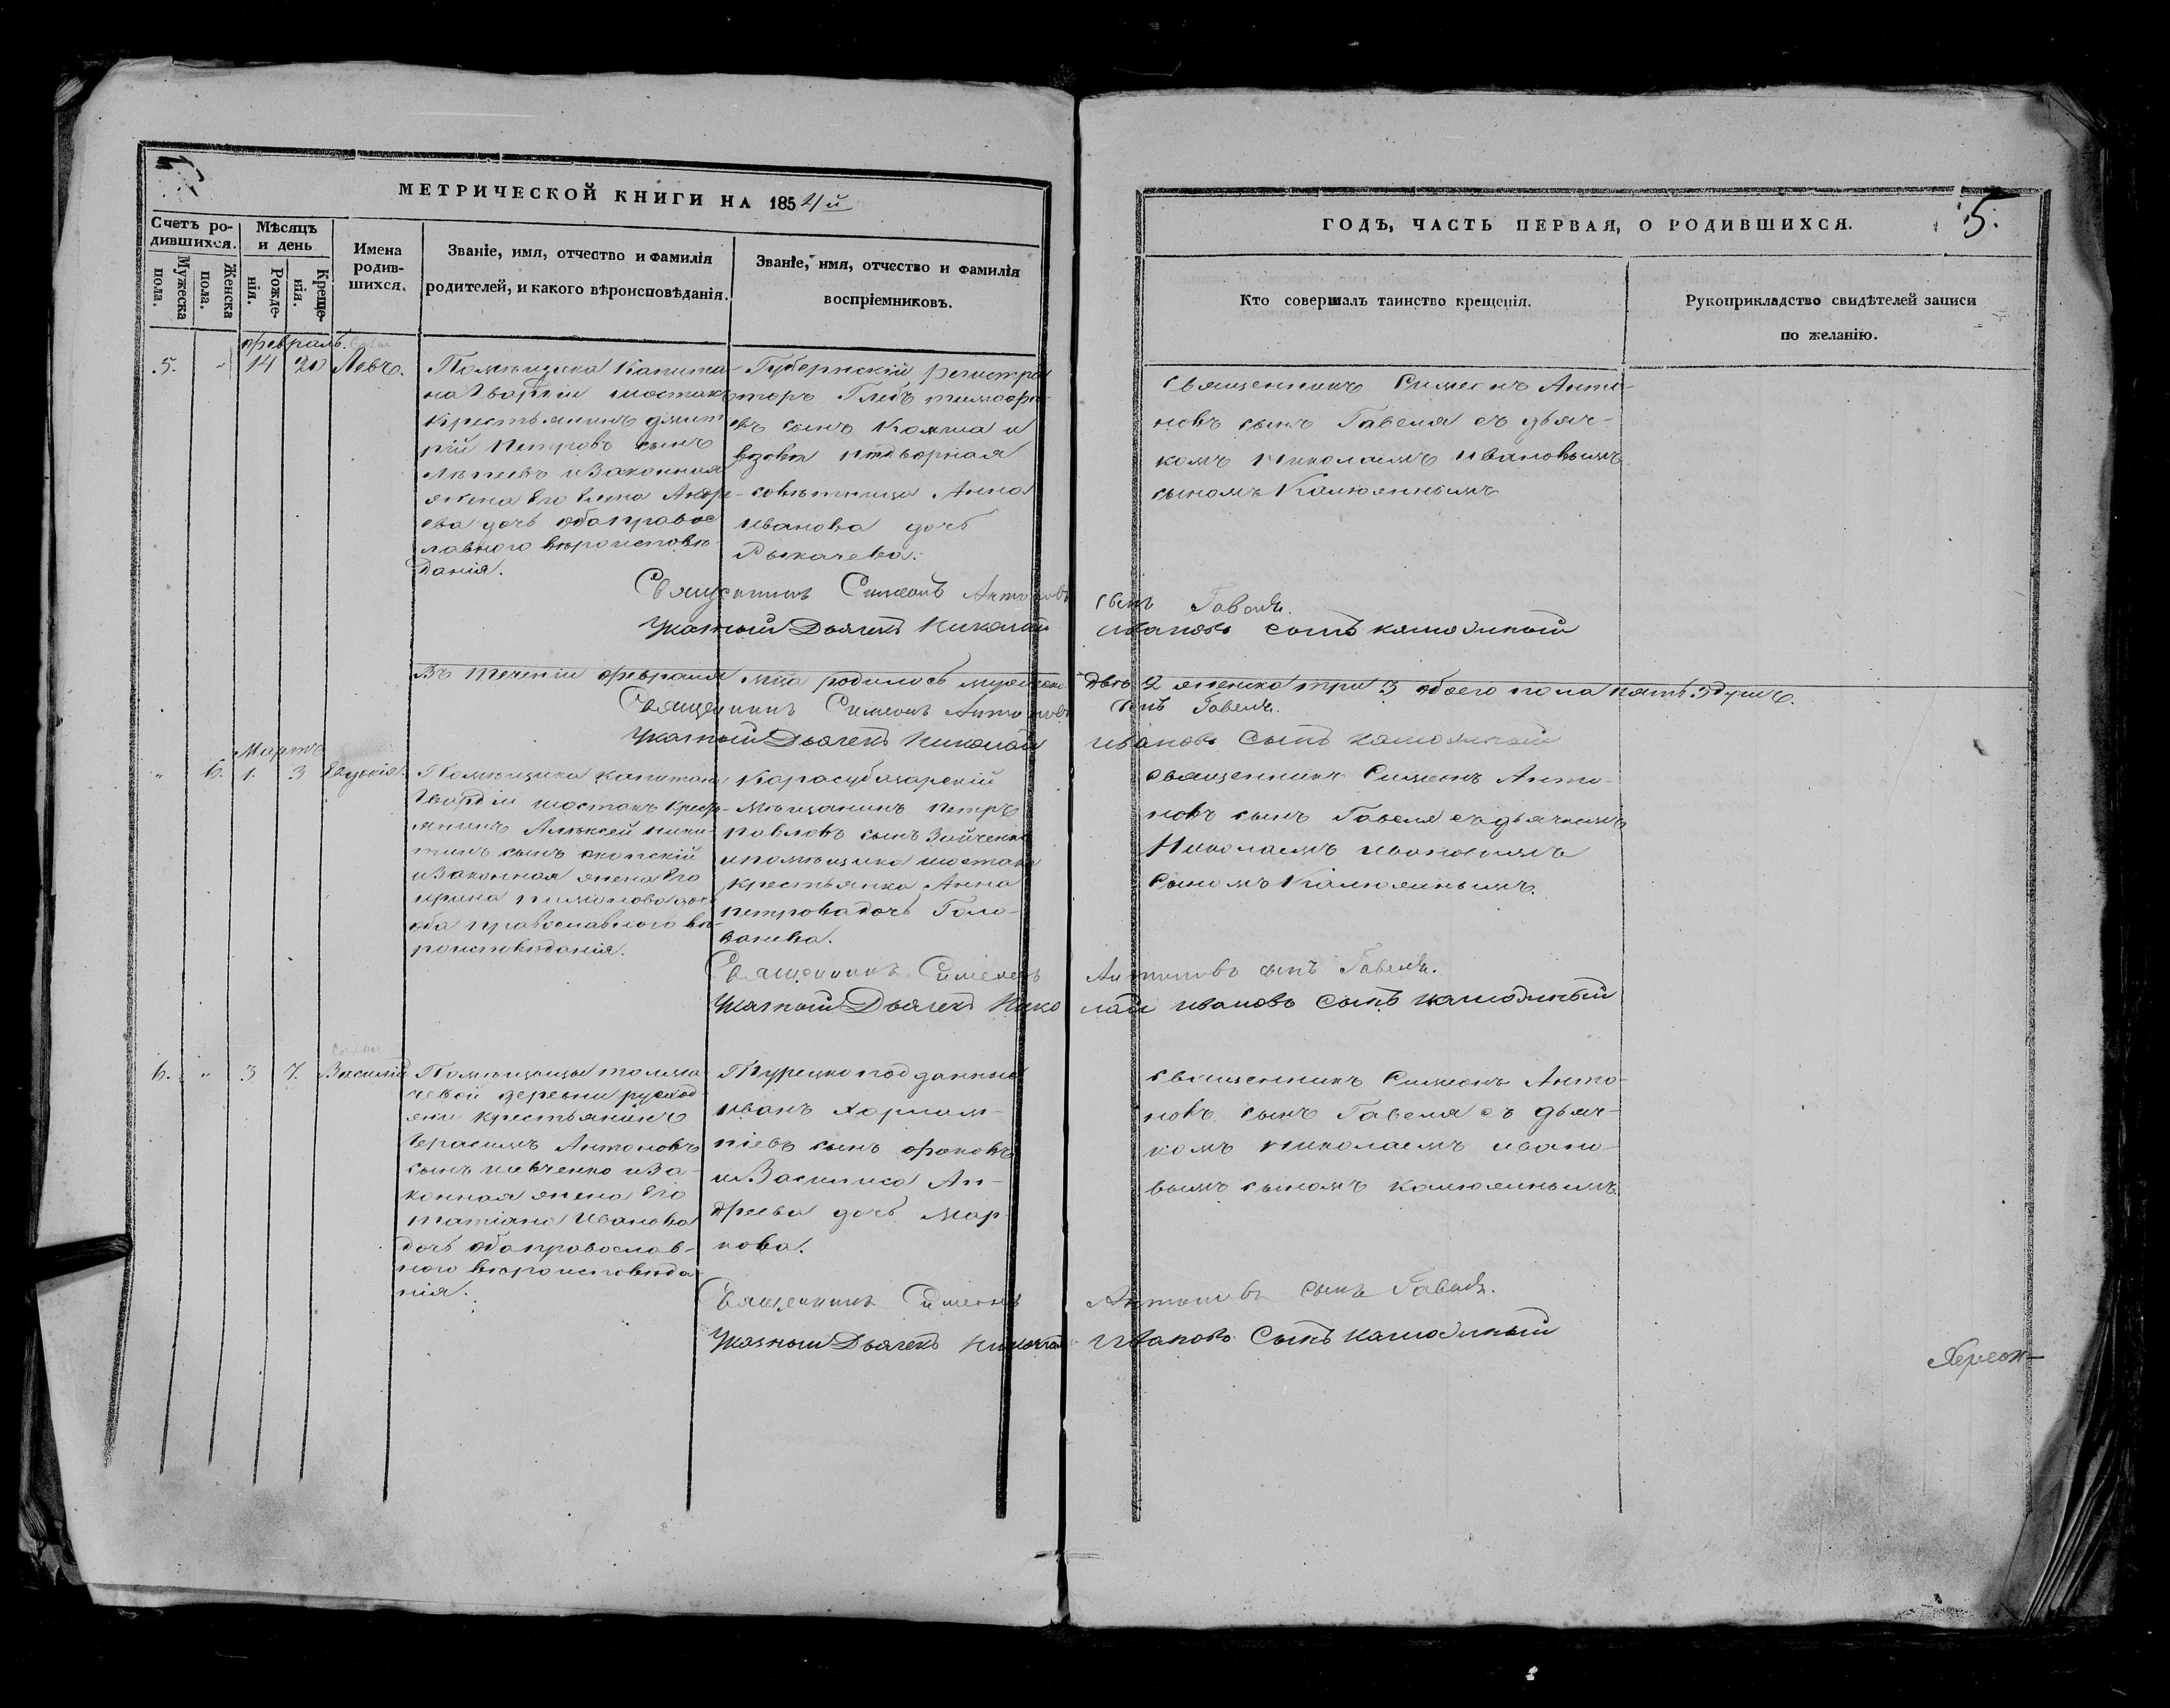 МЕТРИЧЕСКОЙ КНИГИ НА 1854й
Счетъ ро-
дившихся.
Мужеска
пола.
Женска
пола.
Мѣсяцъ
и день
Рожде-
нія.
Креще-
нія.
Имена
родив-
шихся.
Званіе, имя, отчество и фамилія
родителей, и какого вѣроисповѣданія.
Званіе, имя, отчество и фамилія
воспріемниковъ.
ГОДЪ, ЧАСТЬ ПЕРВАЯ, О РОДИВШИХСЯ.
5.
Кто совершалъ таинство крещенія.
Рукоприкладство свидѣтелей записи
по желанію.
февраль.
5. " 14 20 Левъ.
Помѣщика Капита-
на Гвардіи шостакъ
крестьянинъ дмит
рій Петровъ сынъ
и Законная
жена Его Елена Андре-
ева дочь оба правос
лавного вѣроисповѣ-
данія.
Губернскій регистра
торъ Глебъ тимофѣ-
евъ сынъ и
вдова надворная
совѣтница Анна
иванова дочь
Рыкачева.
священникъ Симеонъ Анто-
новъ сынъ Гавеля съ дьяч-
комъ Николаемъ ивановымъ
сыномъ Калюжнымъ
Священникъ Симеонъ Антоновъ сынъ Гавеля.
Указный Дьячекъ Николай ивановъ сынъ калюжный
Въ теченіи февраля мца родилось мужеска два 2 женска три 3 обоего пола пять 5 душъ.
Священникъ Симеонъ Антоновъ сынъ Гавеля.
Указный Дьячекъ Николай ивановъ Сынъ калюжный
Мартъ
" 6. 1. 3 Евдокія.
Помѣщика капитана
Гвардіи шостакъ крест-
янинъ Алексей ники-
тинъ сынъ
и Законная жена Его
ирина дочь
оба православного вѣ-
роисповѣданія.
Карасубазарскій
Мѣщанинъ петръ
павловъ сынъ Зайченко
и помѣщика шостака
крестьянка Анна
петрова дочь Голо-
ванева.
священникъ Симеонъ Анто-
новъ сынъ Гавеля съ дьячкомъ
Николаемъ ивановымъ
сыномъ Калюжнымъ.
Священникъ Симеонъ Антоновъ сынъ Гавеля.
Указный Дьячекъ Николай ивановъ Сынъ калюжный
6. " 3 7. Василій
Помѣщицы толма
чевой деревни
крестьянинъ
Герасимъ Антоновъ
сынъ шевченко и За-
конная жена Его
татіана Иванова
дочь оба православ-
ного вѣроисповѣда
нія.
Турецкоподданный
иванъ Харлам-
піевъ сынъ
и Василиса Ан-
дреева дочь Мар
кова.
священникъ Симеонъ Анто-
новъ сынъ Гавеля съ дьяч-
комъ николаемъ ивано-
вымъ сыномъ калюжнымъ.
Священникъ Симеонъ Антоновъ сынъ Гавеля.
Указный Дьячекъ Николай Ивановъ Сынъ калюжный
Херсон-